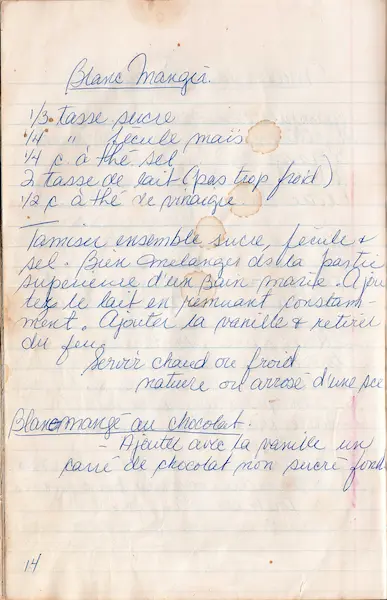 Blanc Manger.
1/3 tasse sucre
1/4 " fécule maïs
1/4 c. à thé sel
2 tasse de lait (pas trop froid)
1/2 c à thé de vinaigre
Tamiser ensemble sucre, fécule &
sel. Bien mélanger ds la partie
supérieure d'un Bain-marie. Ajou
tez le lait en remuant constam-
ment. Ajouter la vanille & retirer
du feu.
Servir chaud ou froid
nature ou arrosé d'une sce
Blanc mangé au chocolat.
- Ajouté avec la vanille un
carré de chocolat non sucré fond
14